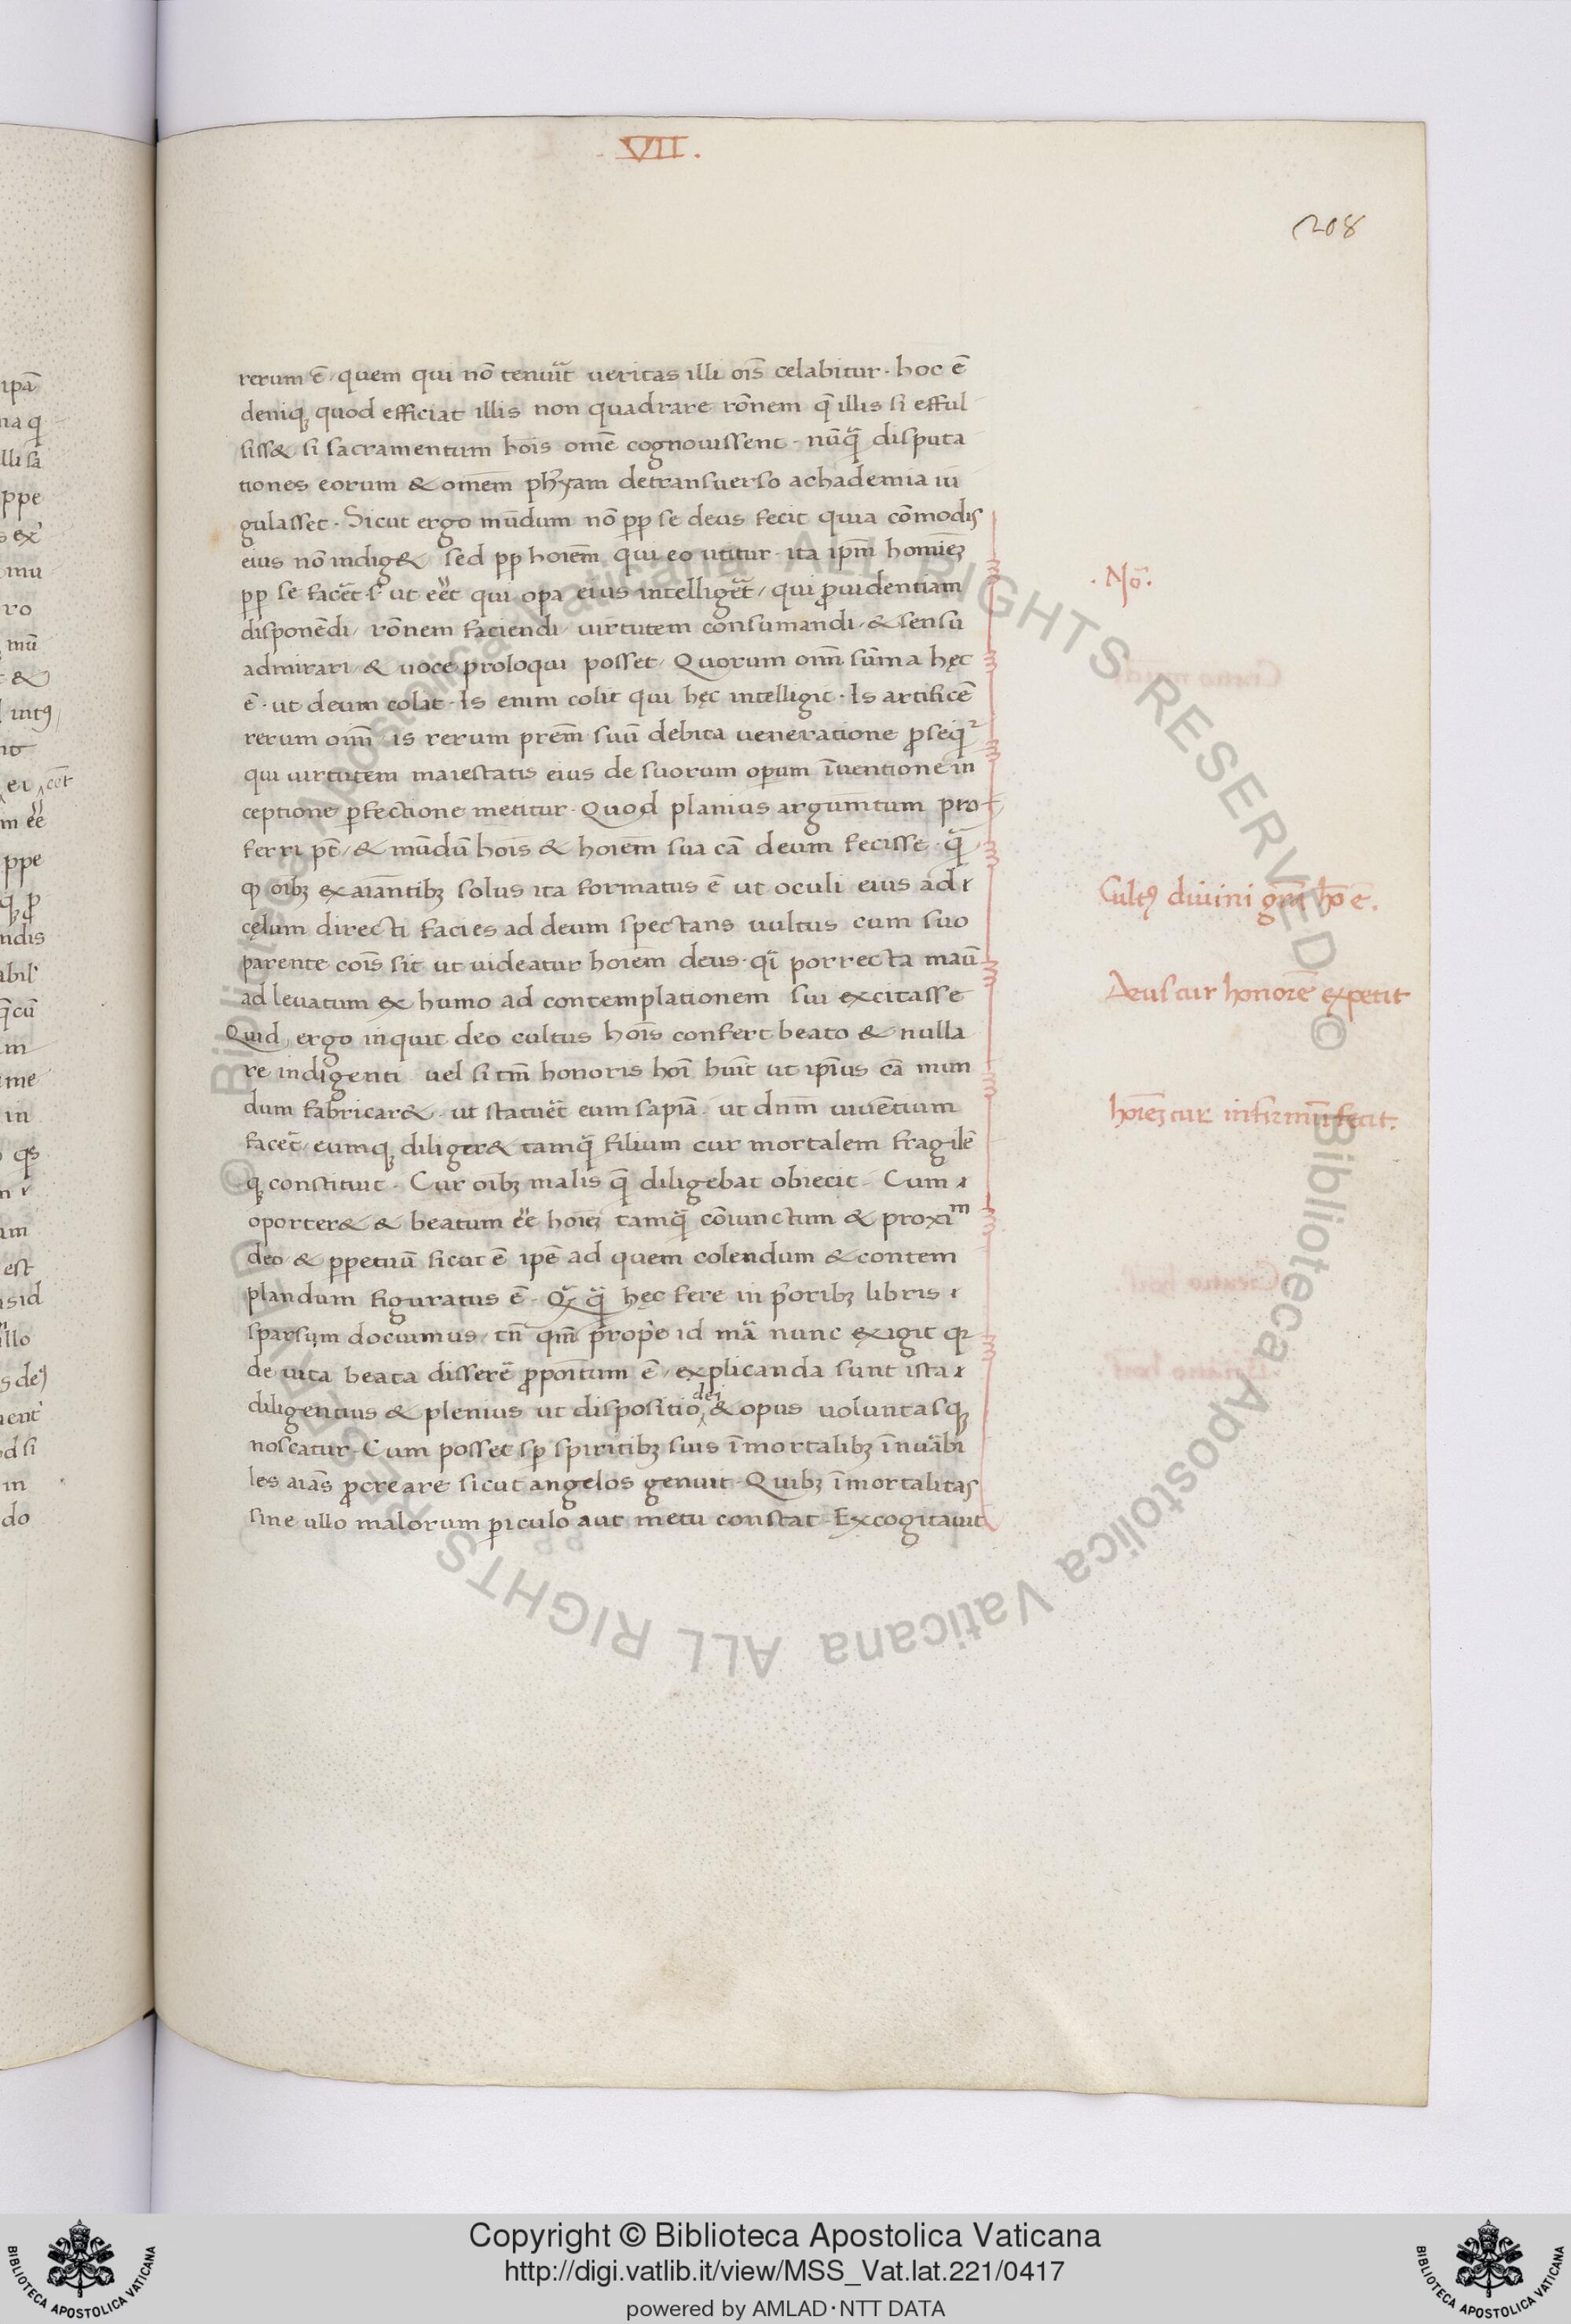 . VII .
208
rerum ē / quem qui nō tenuit̄ ueritas illi oīs celabitur . hoc ē
deniqꝫ quod efficiat illis non quadrare rōnem q̄ illis si efful
siss& si sacramentum hoīs ome cognouissent . nūq̄ disputa
tiones eorum & omēm phyam detransuerso achademia iu
gulasset . Sicut ergo mūdum nō pp se deus fecit quia cōmodis
eius nō indig& sed pp hoiēm qui eo utitur . ita ipm̄ homiēꝫ
pp se facēt . s; ut eēt qui opa eius intelligēt / qui ꝓuidentiam
disponēdi / rōnem faciendi / uirtutem consumandi / & sensū
admirari / & uoce proloqui posset / Quorum om̄ sūma hęc
ē . ut deum colat . Is enim colit qui hęc intelligit . Is artificē
rerum om̄ is rerum prēm suū debita ueneratione ꝓseqͥ²
qui uirtutem maiestatis eius de suorum opum īuentione in
ceptione ꝑfectione metitur . Quod planius argumtum pro
ferri pt̄ / & mūdū hoīs & hoiēm sua cā deum fecisse . q̄
ꝙ oibꝫ ex aiāntibꝫ solus ita formatus ē ut oculi eius ad
cęlum directi facies ad deum spectans uultus cum suo
parente coīs sit ut uideatur hoiēm deus . qͥ porrecta maū
ad leuatum ex humo ad contemplationem sui excitasse
Quid ergo inquit deo cultus hoīs confert beato & nulla
re indigenti . uel si tm̄ honoris hoī huit ut ipīus cā mun
dum fabricar& . ut statuēt eum sapiā . ut dnm̄ uiuentium
facēt / eumqꝫ diliger& tamq̄ filium cur mortalem fragilē
qꝫ constituit . Cur oibꝫ malis q̄ diligebat obiecit . Cum
oporter& & beatum eē hoiēꝫ tamq̄ cōiunctum & proxiᵐ
deo & ꝑpetuū sicut ē ipē ad quem colendum & contem
plandum figuratus ē . Qͣ q̄ hęc fere in pͥoribꝫ libris
sparsim docuimus / tn̄ qm̄ ꝓpͥe id mā nunc exigit qꝛ
de uita beata disserē ꝓpoītum ē / explicanda sunt ista
diligentius & plenius ut dispositio dei & opus uoluntasqꝫ
noscatur . Cum posset sp spiritibꝫ suis īmortalibꝫ īnuābi
les aiās ꝓcreare sicut angelos genuit . Quibꝫ īmortalitas
sine ullo malorum ꝑiculo aut metu constat . Excogitauit
. Nō .
Cultꝰ diuini gr̄a hō ē .
Deus cur honorē expetit
hoiēꝫ cur infirmū fecit .
Copyright © Biblioteca Apostolica Vaticana
http://digi.vatlib.it/view/MSS_Vat.lat.221/0417
powered by AMLAD·NTT DATA
BIBLIOTECA APOSTOLICA VATICANA
BIBLIOTECA APOSTOLICA VATICANA
© Biblioteca Apostolica Vaticana ALL RIGHTS RESERVED © Biblioteca Apostolica Vaticana ALL RIGHTS RESERVED